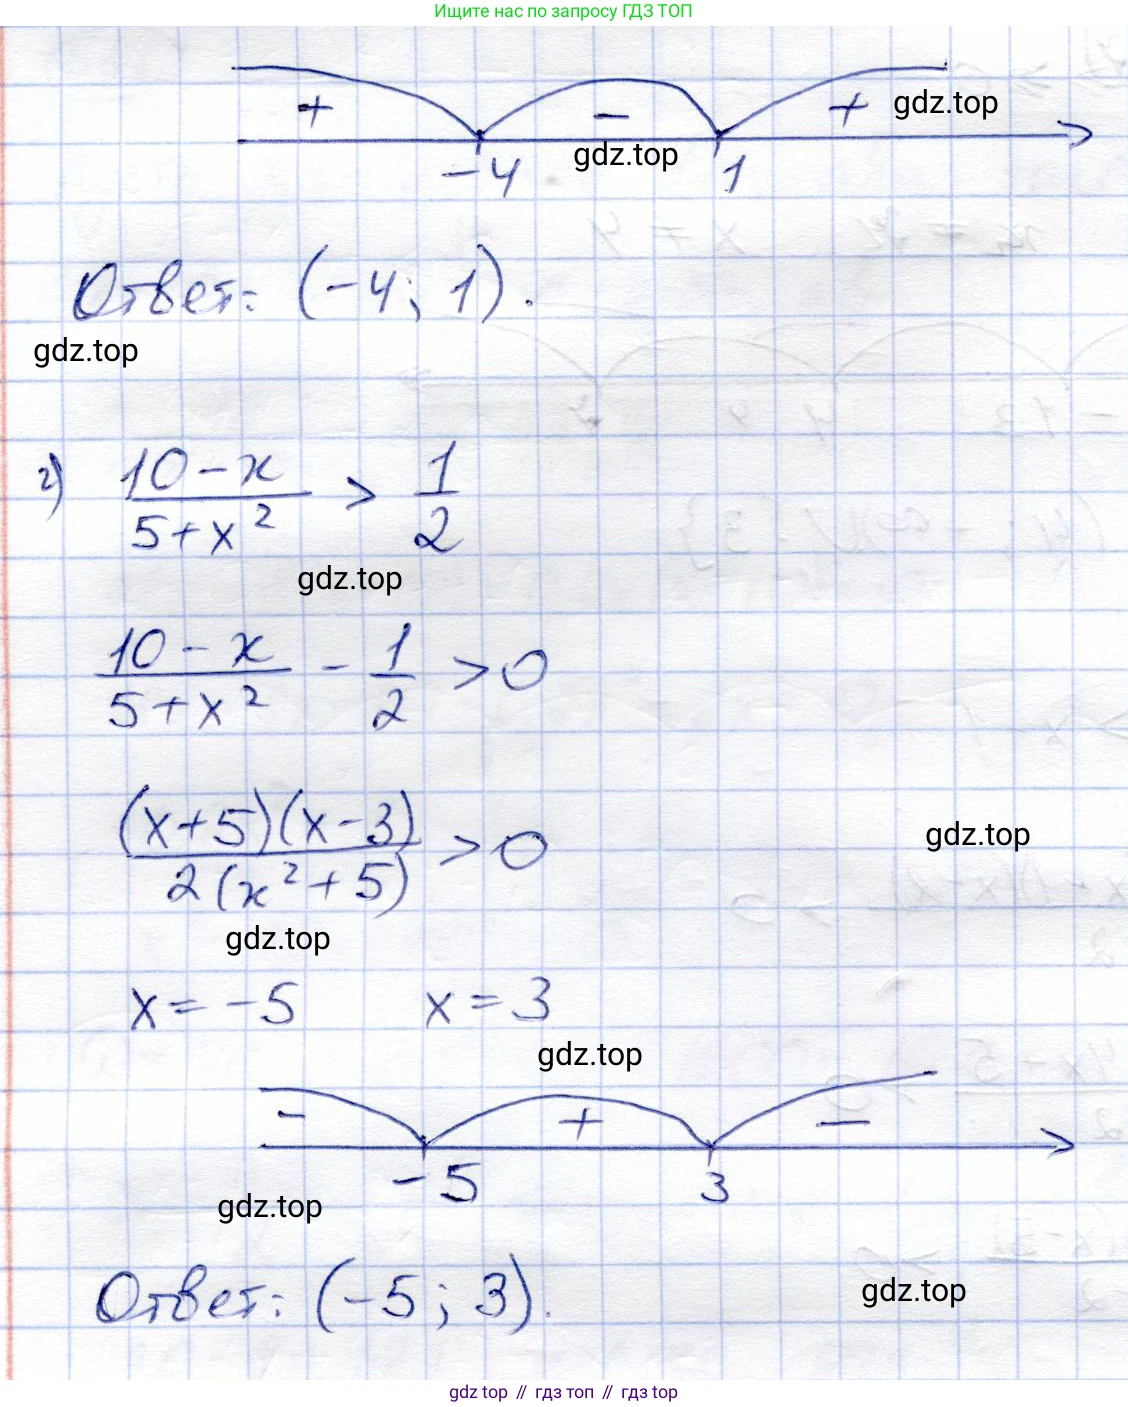 Ищите нас по запросу ГДЗ ТОП
+ − + gdz.top
−4 gdz.top 1
Ответ: (−4; 1).
gdz.top
г) (10−x)/(5+x²) > 1/2
gdz.top
(10−x)/(5+x²) − 1/2 > 0
(x+5)(x−3)/2(x²+5) > 0
gdz.top
gdz.top
x = −5 x = 3
gdz.top
− + −
−5 3
gdz.top
Ответ: (−5; 3).
gdz.top
gdz top // гдз топ // гдз top